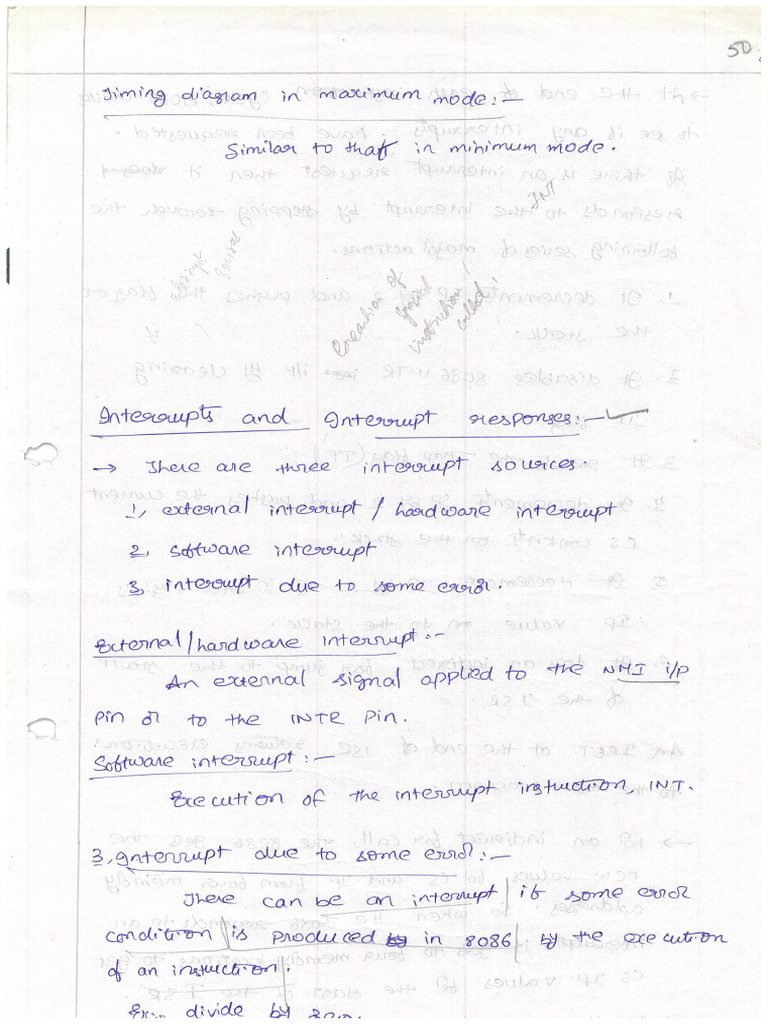 50
Timing diagram in maximum mode:-
Similar to that in minimum mode.
INT
Execution of
special
instruction
called
Interrupts and Interrupt responses:-
→ There are three interrupt sources.
1, external interrupt / hardware interrupt
2, software interrupt
3, interrupt due to some error.
External/hardware interrupt:-
An external signal applied to the NMI i/p
pin or to the INTR Pin.
Software interrupt:-
Execution of the interrupt instruction, INT.
3, Interrupt due to some error:-
There can be an interrupt if some error
condition is produced in 8086 by the execution
of an instruction.
Ex:- divide by zero.